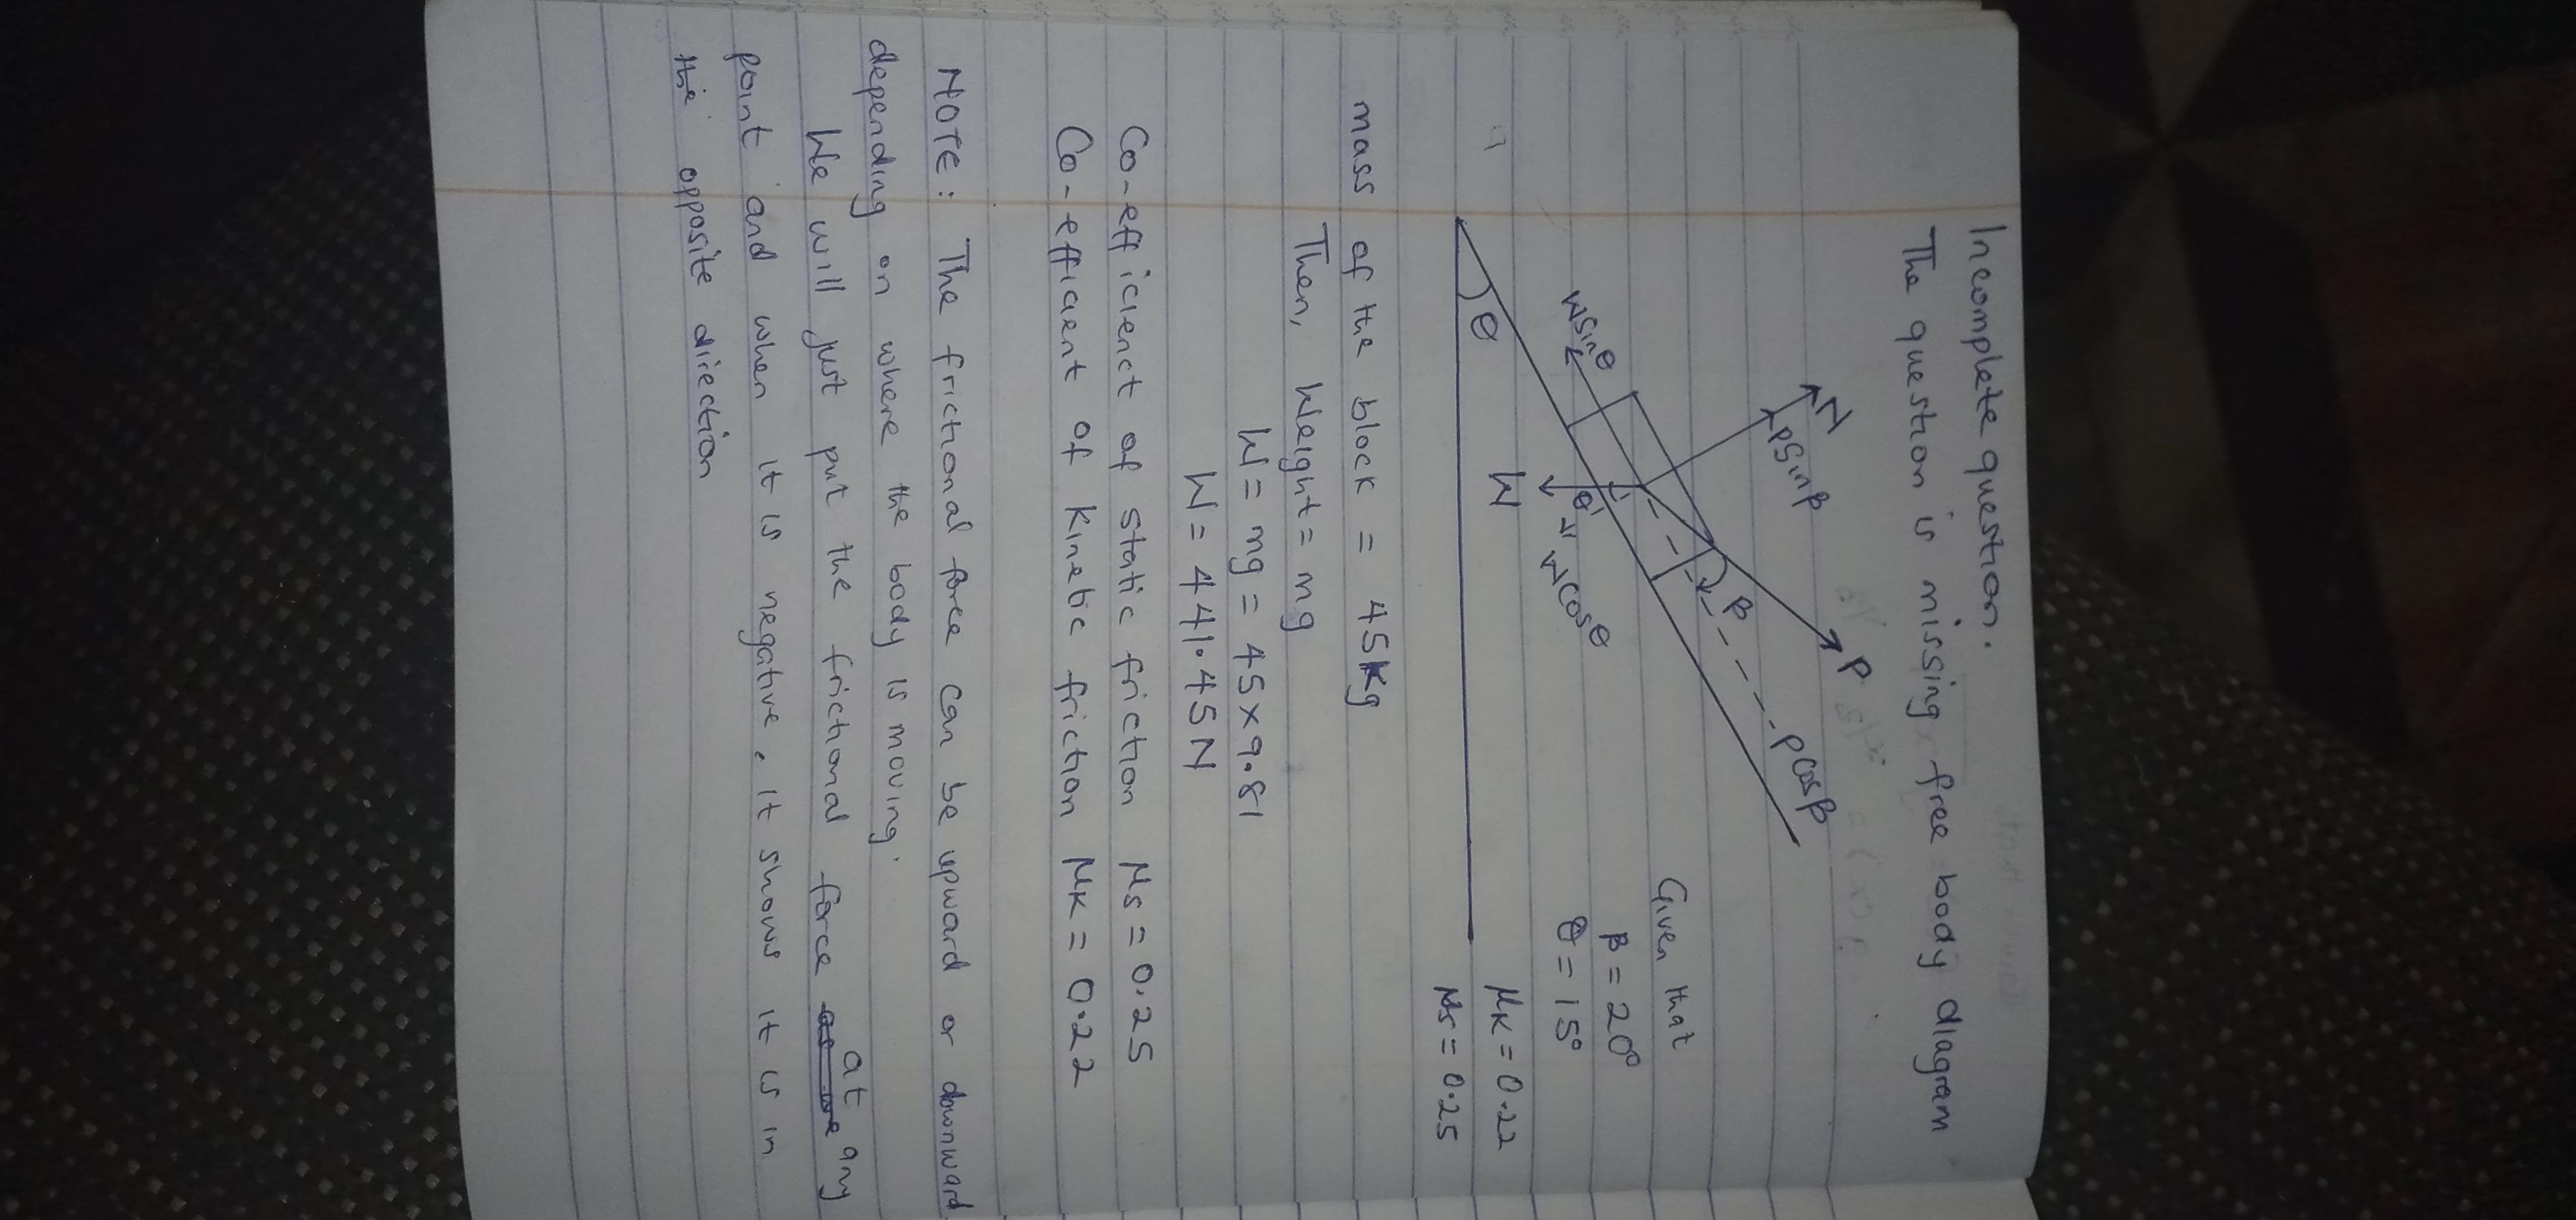 Incomplete question.
The question is missing free body diagram
N
PSinβ
P
β
PCosβ
WSinθ
θ
θ
W
WCosθ
Given that
β = 20°
θ = 15°
μk = 0.22
μs = 0.25
mass of the block = 45kg
Then, Weight = mg
W = mg = 45×9.81
W = 441.45N
Co-efficienct of static friction μs = 0.25
Co-efficient of kinetic friction μk = 0.22
NOTE: The frictional force can be upward or downward
depending on where the body is moving.
We will just put the frictional force at any
point and when it is negative, it shows it is in
the opposite direction